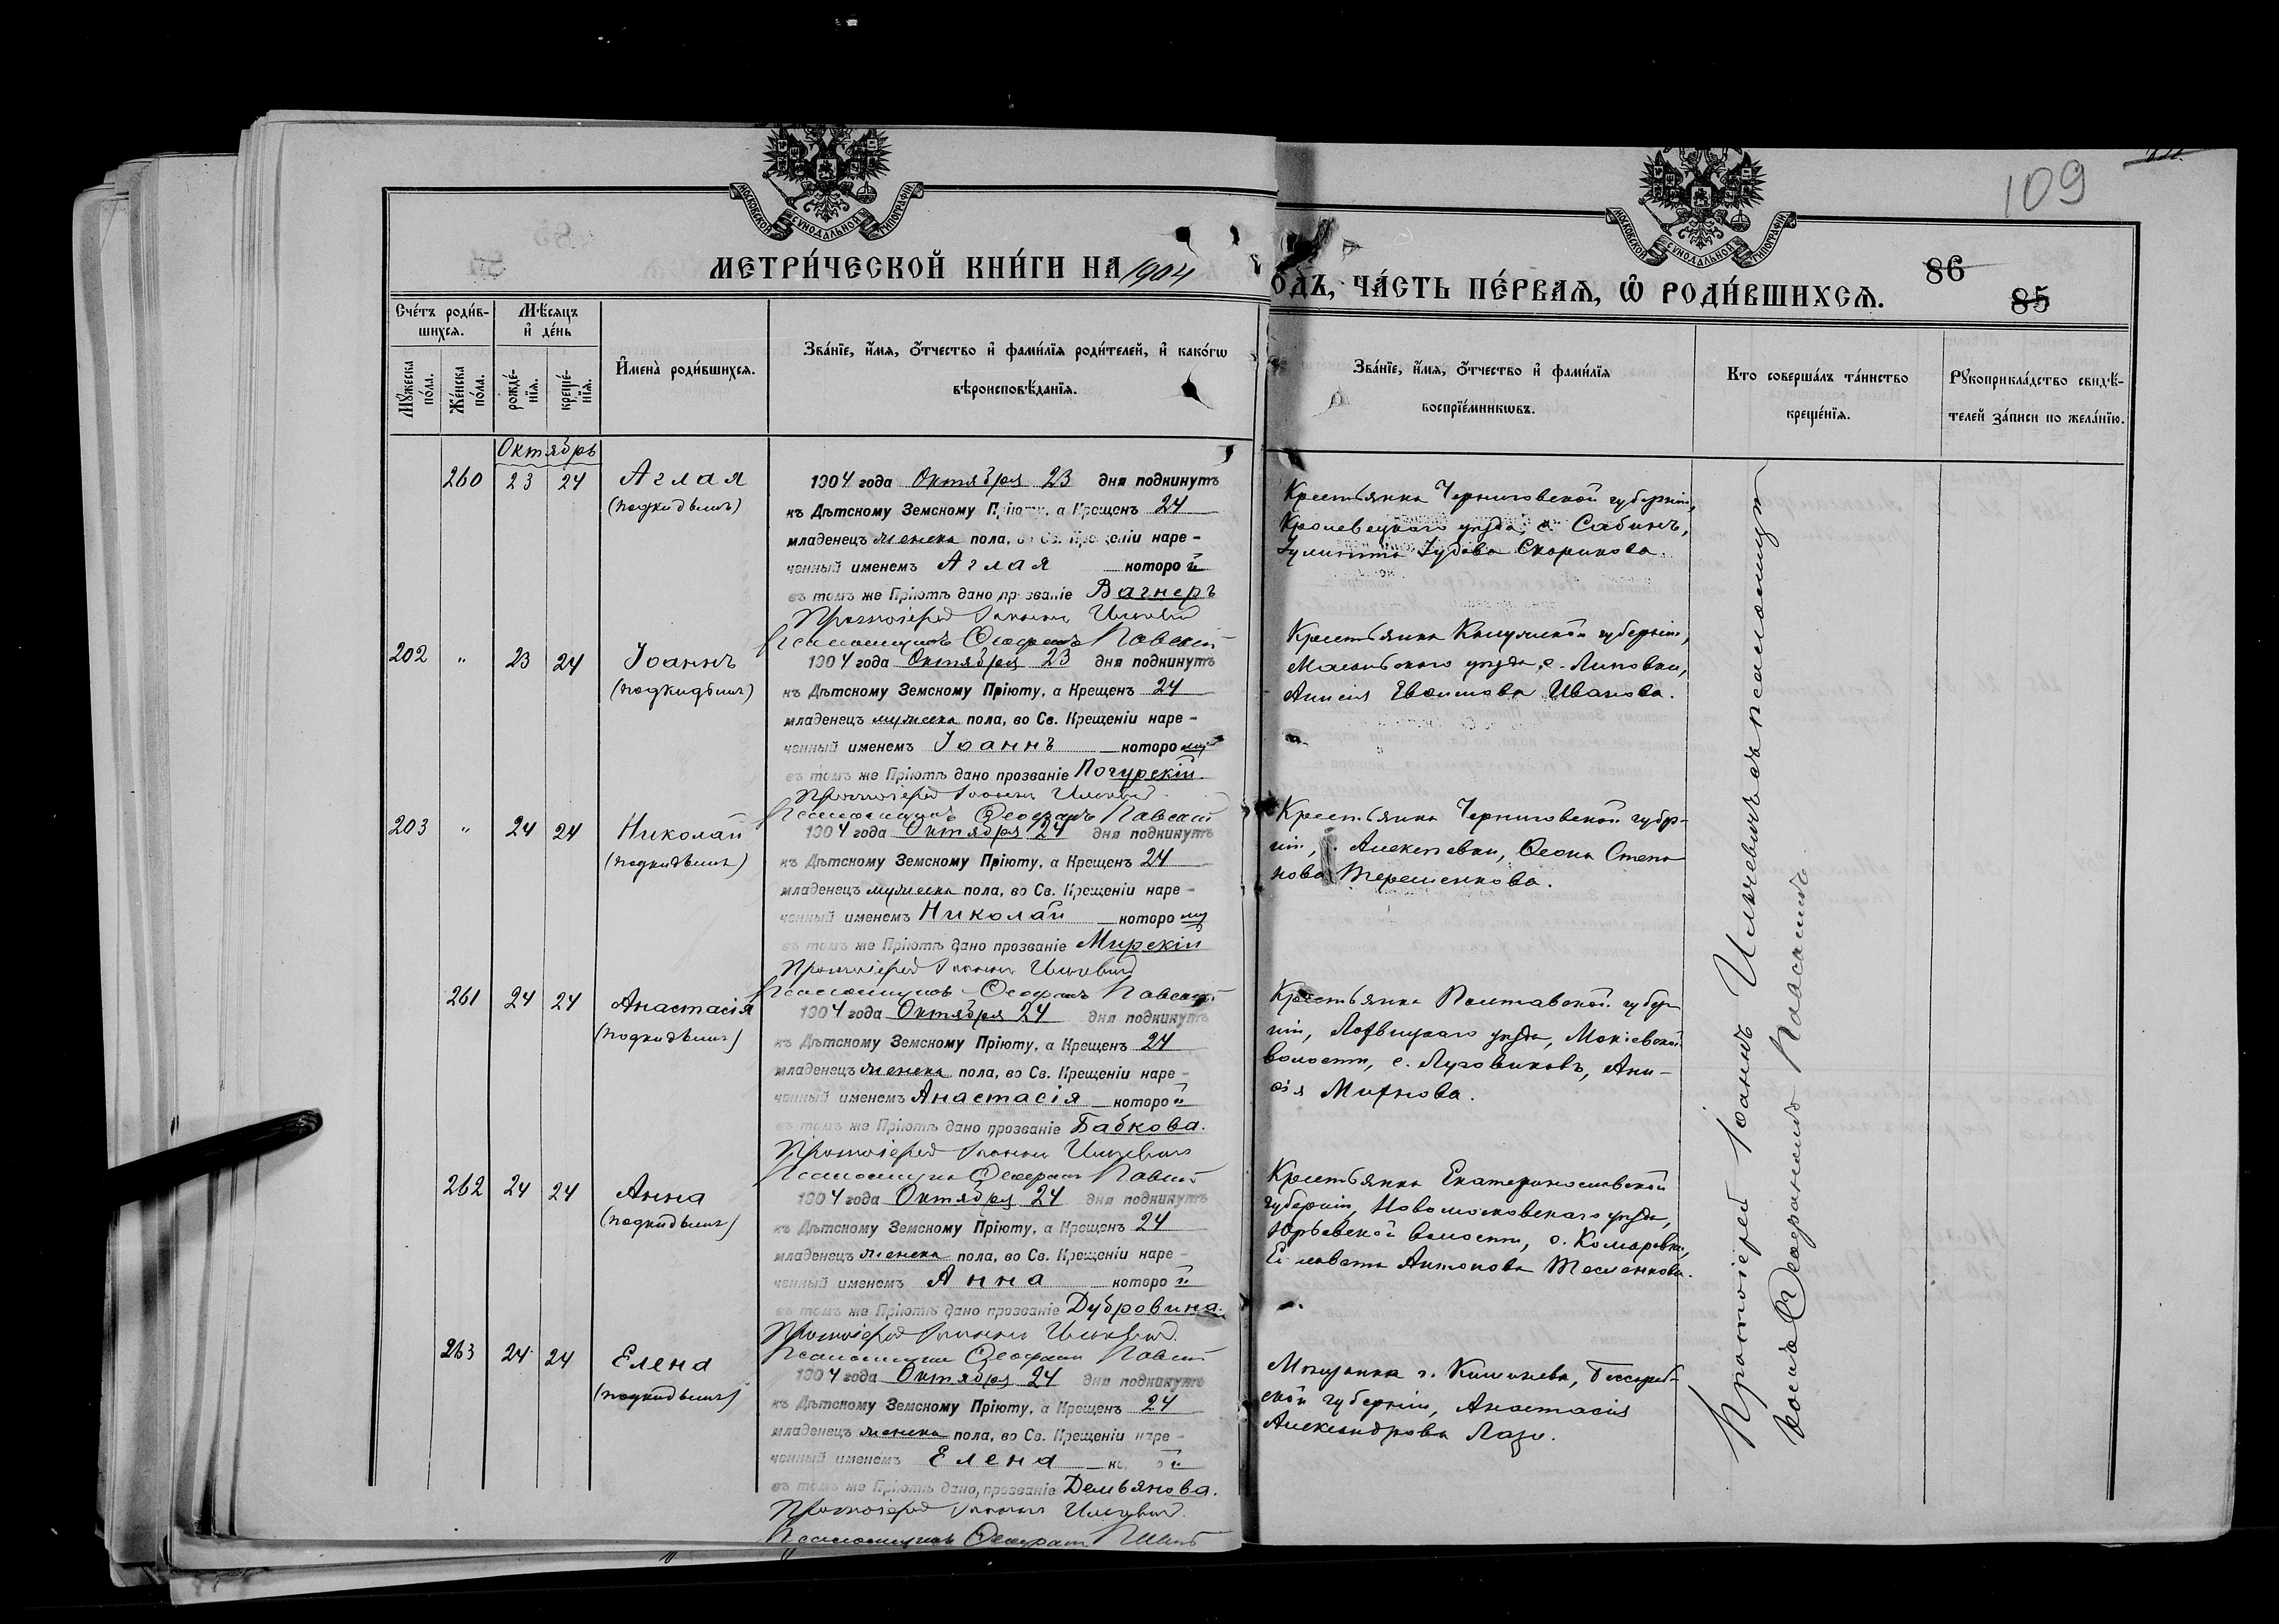 109
МОСКОВСКОЙ СУНОДАЛЬНОЙ ТИПОГРАФІИ
МЕТРИ́ЧЕСКОЙ КНИ́ГИ НА 1904
МОСКОВСКОЙ СУНОДАЛЬНОЙ ТИПОГРАФІИ
ОДЪ, ЧА́СТЬ ПЕ́РВАѦ, Ѡ РОДИ́ВШИХСѦ.
86
85
Сче́тъ роди́в-
шихсѧ.
Мѣ́сѧцъ
и҆ де́нь
Мꙋ́жеска по́ла.
Же́нска по́ла.
рожде́-
нїѧ.
креще́-
нїѧ.
И҆мена̀ роди́вшихсѧ.
Зва́нїе, и҆́мѧ, ѻ҆́тчество и҆ фами́лїѧ роди́телей, и҆ како́гѡ
вѣроисповѣ́данїѧ.
Зва́нїе, и҆́мѧ, ѻ҆́тчество и҆ фами́лїѧ
воспрїе́мникѡвъ.
Кто соверша́лъ та́инство
креще́нїѧ.
Рꙋкоприкла́дство свидѣ́-
телей за́писи по жела́нїю.
Октябрь
260 23 24 Аглая
(подкидышъ)
1904 года Октября 23 дня подкинутъ
къ Дѣтскому Земскому Пріюту, а Крещенъ 24
младенецъ женска пола, во Св. Крещеніи наре-
ченный именемъ Аглая которой
въ томъ же Пріютѣ дано прозваніе Вагнеръ
Протоіерей Іоаннъ Ильчевичъ
Псаломщикъ Ѳеофанъ Павскій
Крестьянка Черниговской губерніи,
Кролевецкаго уѣзда, с. Сабинъ,
Іулитта Іудова Скорикова.
202 " 23 24 Іоаннъ
(подкидышъ)
1904 года Октября 23 дня подкинутъ
къ Дѣтскому Земскому Пріюту, а Крещенъ 24
младенецъ мужеска пола, во Св. Крещеніи наре-
ченный именемъ Іоаннъ которому
въ томъ же Пріютѣ дано прозваніе Погурскій.
Протоіерей Іоаннъ Ильчевичъ
Псаломщикъ Ѳеофанъ Павскій
Крестьянка Калужской губерніи,
уѣзда, с. Липовки,
Анисія Иванова.
203 " 24 24 Николай
(подкидышъ)
1904 года Октября 24 дня подкинутъ
къ Дѣтскому Земскому Пріюту, а Крещенъ 24
младенецъ мужеска пола, во Св. Крещеніи наре-
ченный именемъ Николай которому
въ томъ же Пріютѣ дано прозваніе Мирскій
Протоіерей Іоаннъ Ильчевичъ
Псаломщикъ Ѳеофанъ Павскій
Крестьянка Черниговской губер-
ніи, с. Алексѣевки, Ѳеона Степа
нова Терешенкова.
261 24 24 Анастасія
(подкидышъ)
1904 года Октября 24 дня подкинутъ
къ Дѣтскому Земскому Пріюту, а Крещенъ 24
младенецъ женска пола, во Св. Крещеніи наре-
ченный именемъ Анастасія которой
въ томъ же Пріютѣ дано прозваніе Бабкова.
Протоіерей Іоаннъ Ильчевичъ
Псаломщикъ Ѳеофанъ Павскій
Крестьянка Полтавской губер
ніи, Лохвицкаго уѣзда, Мокіевской
волости, с. Луговиковъ, Ани-
сія Михнова.
262 24 24 Анна
(подкидышъ)
1904 года Октября 24 дня подкинутъ
къ Дѣтскому Земскому Пріюту, а Крещенъ 24
младенецъ женска пола, во Св. Крещеніи наре-
ченный именемъ Анна которой
въ томъ же Пріютѣ дано прозваніе Дубровина.
Протоіерей Іоаннъ Ильчевичъ.
Псаломщикъ Ѳеофанъ Павскій
Крестьянка Екатеринославской
губерніи, Новомосковскаго уѣзда,
Юрьевской волости, с. Комаровки,
Елисавета Антонова Тесленкова.
263 24 24 Елена
(подкидышъ)
1904 года Октября 24 дня подкинутъ
къ Дѣтскому Земскому Пріюту, а Крещенъ 24
младенецъ женска пола, во Св. Крещеніи наре-
ченный именемъ Елена которой
въ томъ же Пріютѣ дано прозваніе Демьянова.
Протоіерей Іоаннъ Ильчевичъ.
Псаломщикъ Ѳеофанъ
Мѣщанка г. Кишинева, Бессараб-
ской губерніи, Анастасія
Александрова Лазо.
Протоіерей Іоаннъ Ильчевичъ съ псаломщи
комъ Ѳеофаномъ Павскимъ